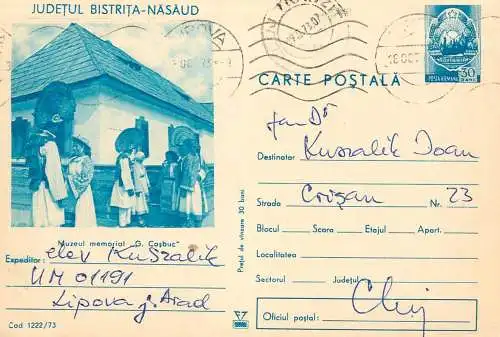 JUDEȚUL BISTRIȚA-NĂSĂUD
Muzeul memorial "G. Coșbuc"
Expeditor: elev Kuszalik
UM 01191
Lipova j. Arad
Cod 1222/73
CARTE POȘTALĂ
POSTA ROMANA 30
Destinatar Kuszalik Ioan
Strada Crișan Nr. 23
Blocul Scara Etajul Apart.
Localitatea
Sectorul Județul
Cluj
Oficiul poștal:
Prețul de vînzare 30 bani